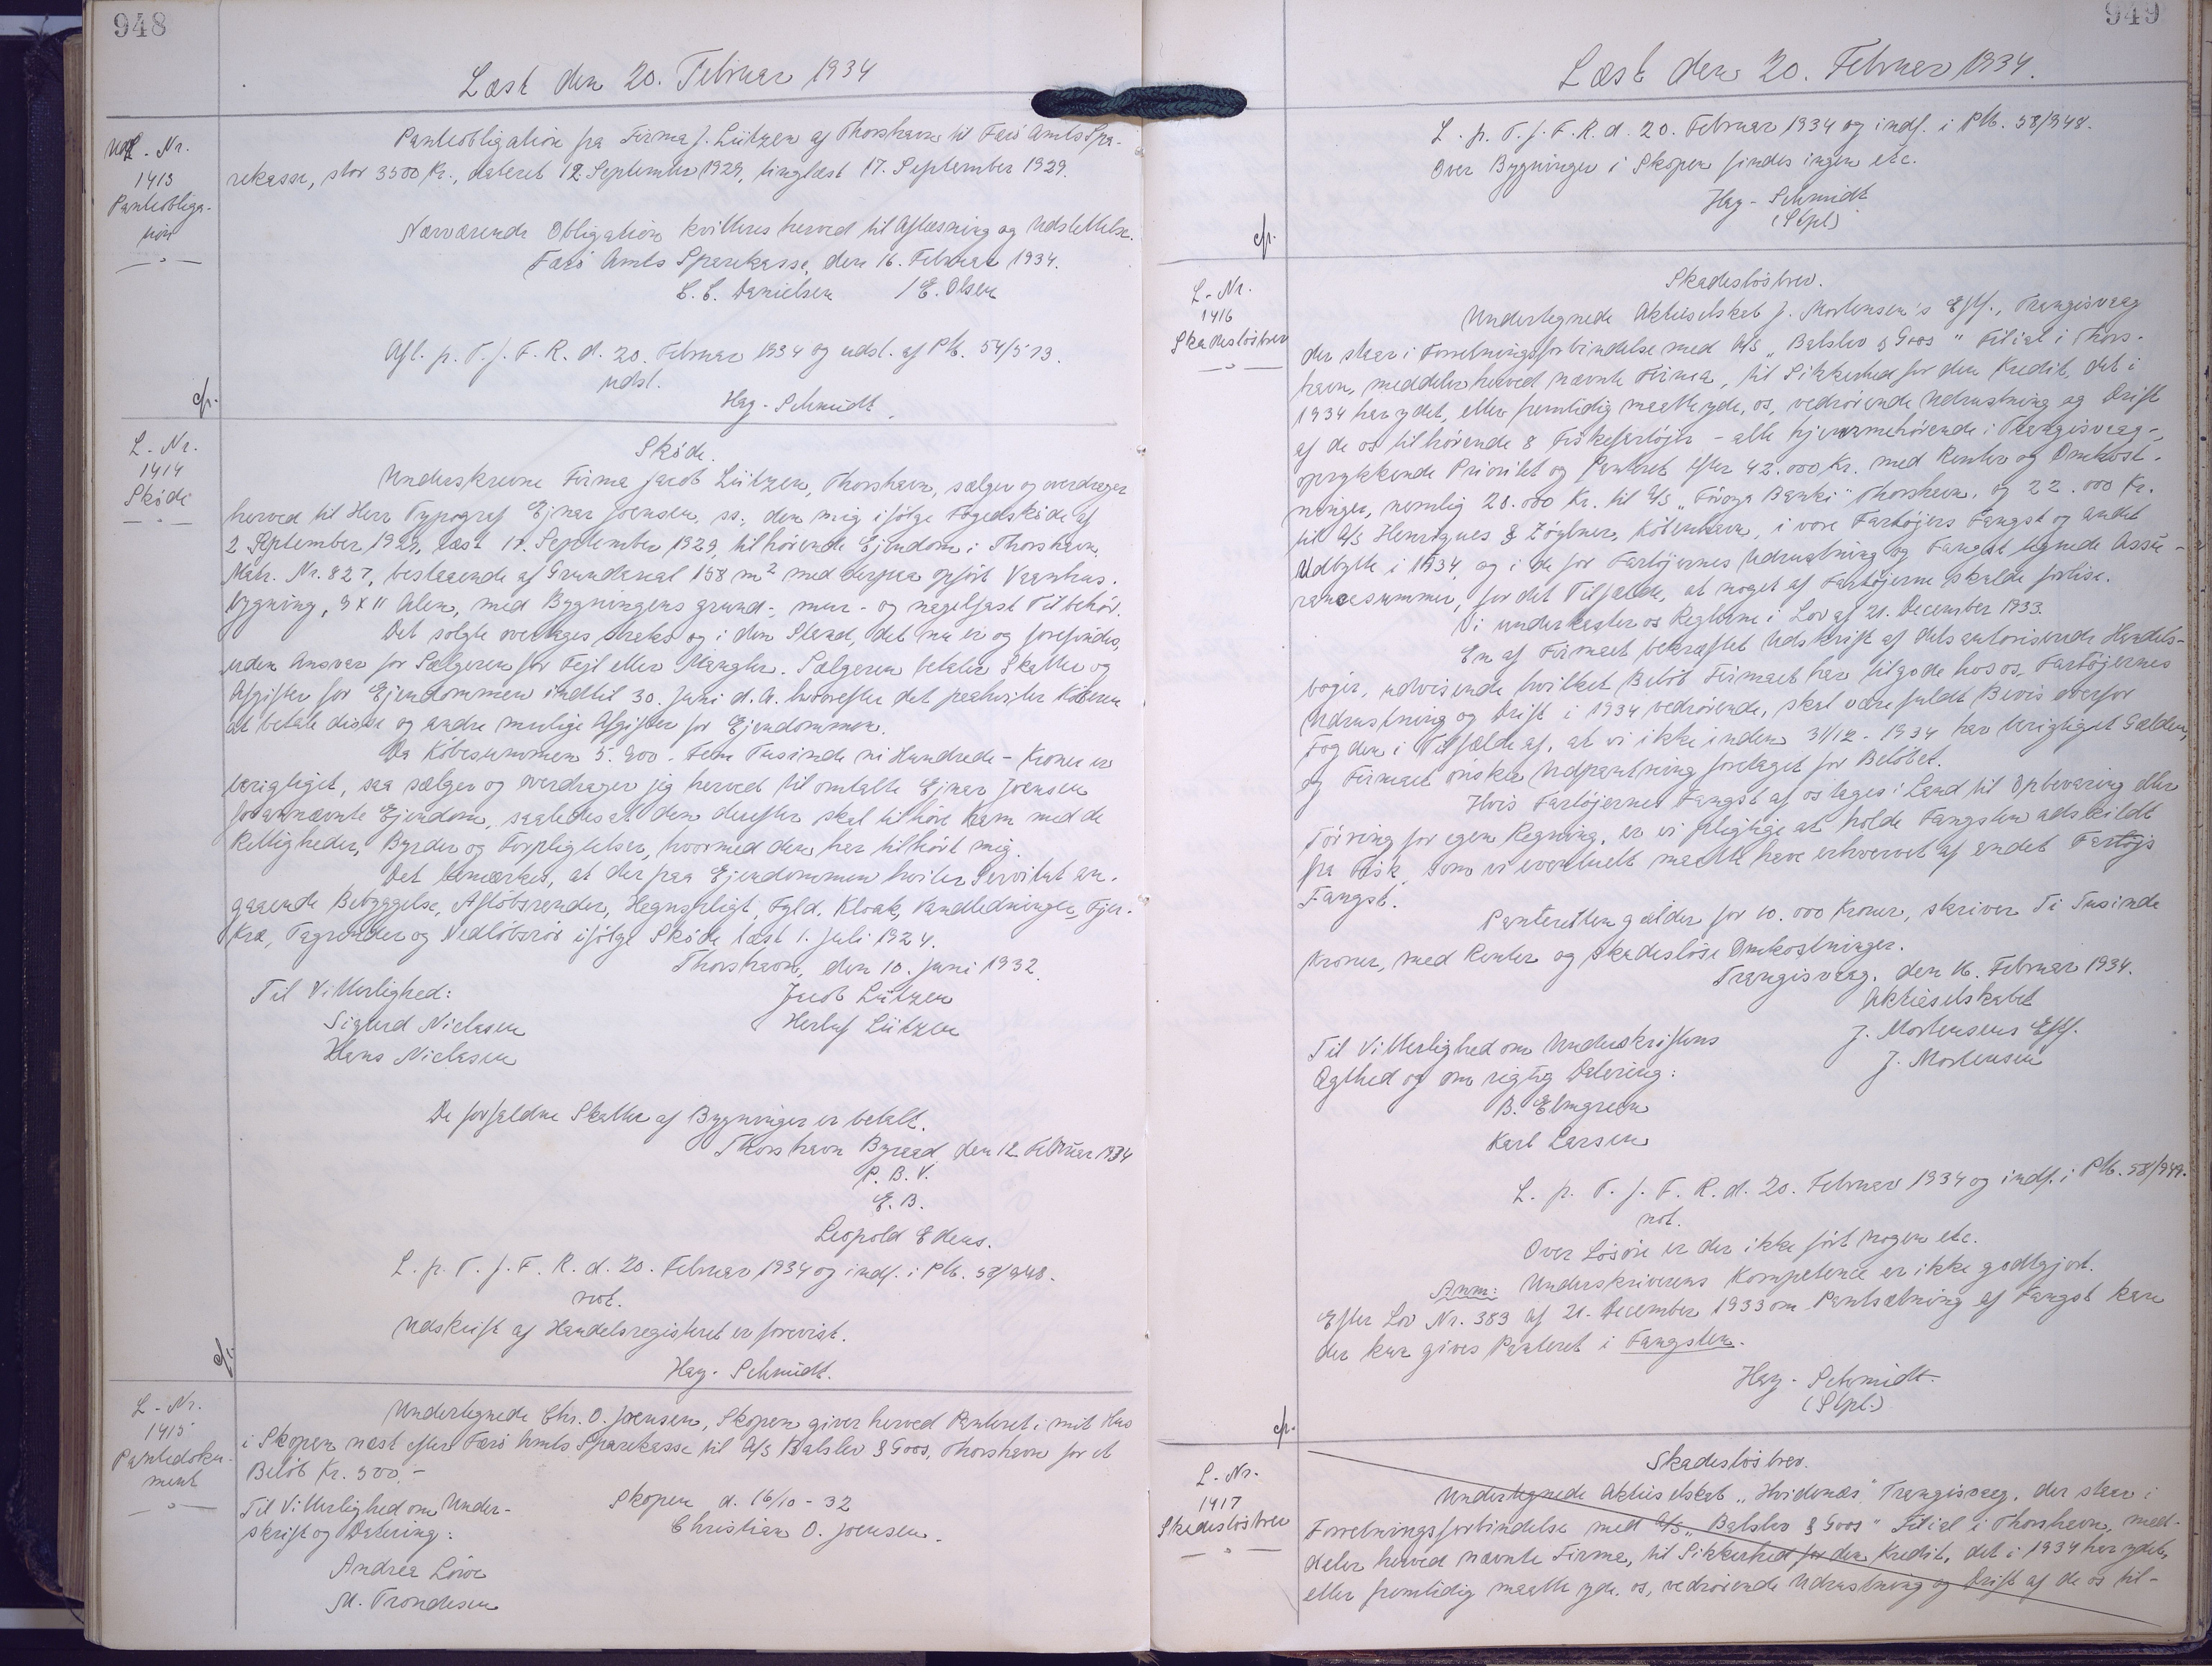 948
Læst den 20. Februar 1934
Udl. Nr.
1413
Panteobliga-
tion
Panteobligation fra Firma J. Lützen af Thorshavn til Færö Amts Spa-
rekasse, stor 3500 Kr., dateret 12 September 1929, tinglæst 17. September 1929.
Nærværende Obligation kvitteres herved til Aflæsning og Udslettelse.
Færö Amts Sparekasse, den 16. Februar 1934.
C. C. Danielsen / E. Olsen
Afl. p. T. f. F. R. d. 20. Februar 1934 og udsl. af Ptb. 54/573.
udsl.
Hag-Schmidt.
cfr.
L. Nr.
1414
Sköde
Sköde.
Underskrevne Firma Jacob Lützen, Thorshavn, sælger og overdrager
herved til Herr Typograf Ejnar Joensen, ss., den mig ifölge Fogedsköde af
2 September 1929, læst 17. September 1929, tilhörende Ejendom i Thorshavn,
Matr. Nr. 827, bestaaende af Grundareal 158 m² med derpaa opfört Vaanhus-
bygning, 9 x 11 Alen, med Bygningens grund-, mur- og nagelfast Tilbehör.
Det solgte overtages straks og i den Stand, det nu er og forefindes,
uden Ansvar for Sælgeren for Fejl eller Mangler. Sælgeren betaler Skatter og
Afgifter for Ejendommen indtil 30. Juni d. A. hvorefter det paahviler Köberen
at betale disse og andre mulige Afgifter for Ejendommen.
Da Köbesummen 5.900. Fem Tusinde ni Hundrede - Kroner er
berigtiget, saa sælger og overdrager jeg herved til omtalte Ejnar Joensen
forannævnte Ejendom, saaledes at den derefter skal tilhöre ham med de
Rettigheder, Byrder og Forpligtelser, hvormed den har tilhört mig.
Det bemærkes, at der paa Ejendommen hviler Servitut an-
gaaende Bebyggelse, Aflöbsrender, Hegnspligt, Fyld, Kloak, Vandledninger, Fjer-
kræ, Tagrender og Nedlöbsrör ifölge Sköde læst 1. Juli 1924.
Thorshavn, den 10. Juni 1932.
Til Vitterlighed: Jacob Lützen
Sigurd Niclasen Herluf Lützen
Hans Niclasen
De forfaldne Skatter af Bygninger er betalt.
Thorshavn Byraad, den 12. Februar 1934
P. B. V.
E. B.
Leopold Edens.
L. p. T. f. F. R. d. 20. Februar 1934 og indf. i Ptb. 58/948.
not.
Udskrift af Handelsregisteret er forevist.
Hag-Schmidt.
cfr.
L. Nr.
1415
Pantedoku-
ment
Undertegnede Chr. O. Joensen, Skopen giver herved Panteret i mit Hus
i Skopen næst efter Færö Amts Sparekasse til A/S Balslev & Goos, Thorshavn for et
Belöb Kr. 500,-
Til Vitterlighed om Under- Skopen d. 16/10-32
skrift og Datering: Christian O. Joensen.
Andrea Löwe
M. Trondesen
949
Læst den 20. Februar 1934.
L. p. T. f. F. R. d. 20. Februar 1934 og indf. i Ptb. 58/948.
Over Bygninger i Skopen findes ingen etc.
Hag-Schmidt
(Stpl)
cfr.
L. Nr.
1416
Skadeslösbrev
Skadeslösbrev.
Undertegnede Aktieselskab J. Mortensen's Eftf., Trangisvaag
der staar i Forretningsforbindelse med A/S „Balslev & Goos" Filial i Thors-
havn, meddeler herved nævnte Firma, til Sikkerhed for den Kredit, det i
1934 har ydet, eller fremtidig maatte yde, os, vedrörende Udrustning og Drift
af de os tilhörende 8 Fiskefartöjer - alle hjemmehörende i Trangisvaag -,
oprykkende Prioritet og Panteret efter 42.000 Kr. med Renter og Omkost-
ninger, nemlig 20.000 Kr. til A/S „Föroya Banki" Thorshavn, og 22.000 Kr.
til A/S Henriques & Zöylner, Köbenhavn, i vore Fartöjers Fangst og andet
Udbytte i 1934, og i de for Fartöjernes Udrustning og Fangst tegnede Assu-
rancesummer, for det Tilfælde, at noget af Fartöjerne skulde forlise.
Vi underkaster os Reglerne i Lov af 21. December 1933.
En af Firmaet bekræftet Udskrift af dets autoriserede Handels-
böger, udvisende hvilket Belöb Firmaet har tilgode hos os, Fartöjernes
Udrustning og Drift i 1934 vedrörende, skal være fuldt Bevis overfor
Fogden i Tilfælde af, at vi ikke inden 31/12-1934 har berigtiget Gælden,
og Firmaet önsker Udpantning foretaget for Belöbet.
Hvis Fartöjernes Fangst af os tages i Land til Opbevaring eller
Törring for egen Regning, er vi pligtige at holde Fangsten adskildt
fra Fisk, som vi eventuelt maatte have erhvervet af andet Fartöjs
Fangst.
Panteretten gælder for 10.000 Kroner, skriver Ti Tusinde
Kroner, med Renter og skadeslöse Omkostninger.
Trangisvaag, den 16. Februar 1934.
Aktieselskabet
Til Vitterlighed om Underskriftens J. Mortensens Eftf.
Ægthed og om rigtig Datering: J. Mortensen
B. Elmgreen
Karl Larsen
L. p. T. f. F. R. d. 20. Februar 1934 og indf. i Ptb. 58/949.
not.
Over Lösöre er der ikke fört nogen etc.
Anm: Underskriverens Kompetence er ikke godtgjort.
Efter Lov Nr. 383 af 21. December 1933 om Pantsætning af Fangst kan
der kun gives Panteret i Fangsten.
Hag-Schmidt
(Stpl.)
cfr.
L. Nr.
1417
Skadeslösbrev
Skadeslösbrev.
Undertegnede Aktieselskab „Hvidenæs" Trangisvaag, der staar i
Forretningsforbindelse med A/S „Balslev & Goos" Filial i Thorshavn, med-
deler herved nævnte Firma, til Sikkerhed for den Kredit, det i 1934 har ydet,
eller fremtidig maatte yde, os, vedrörende Udrustning og Drift af de os til-